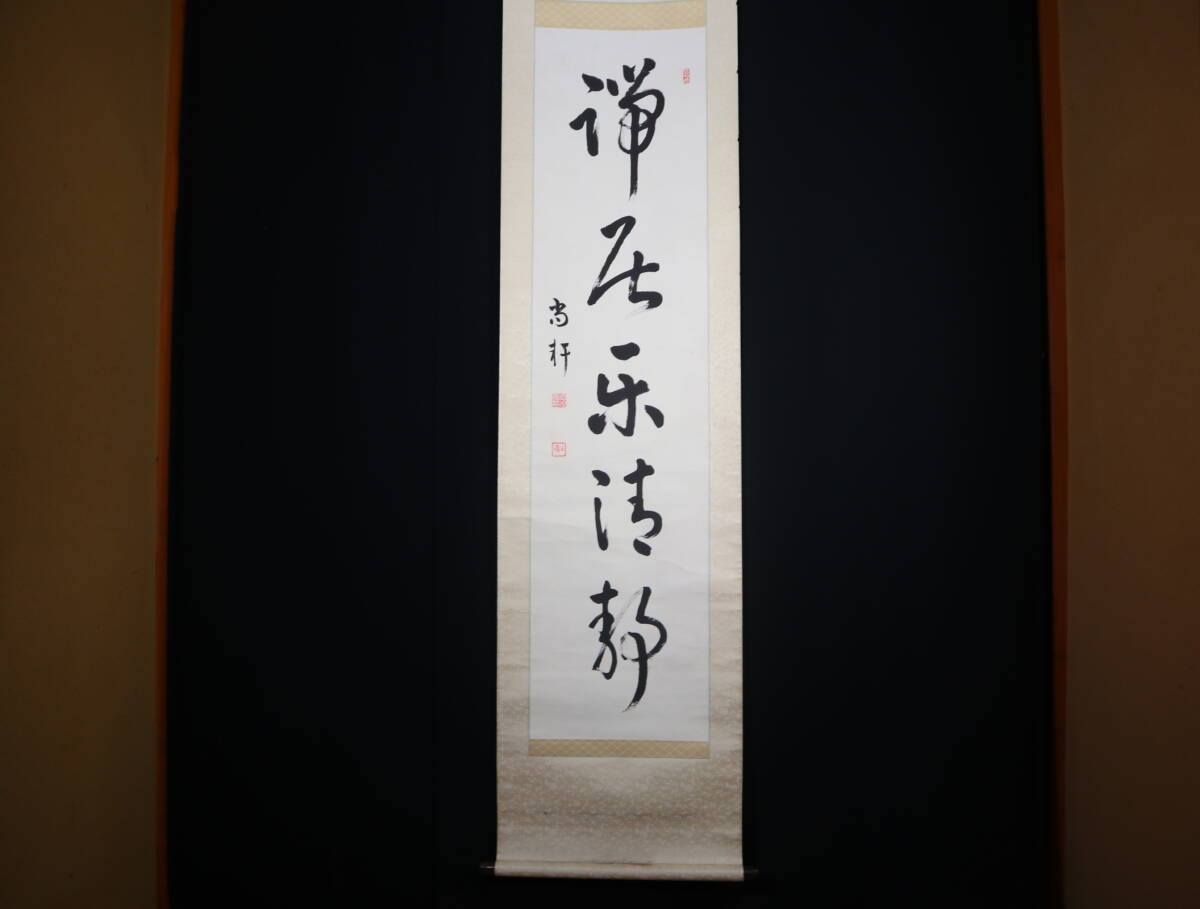 禅居楽清静
尚軒